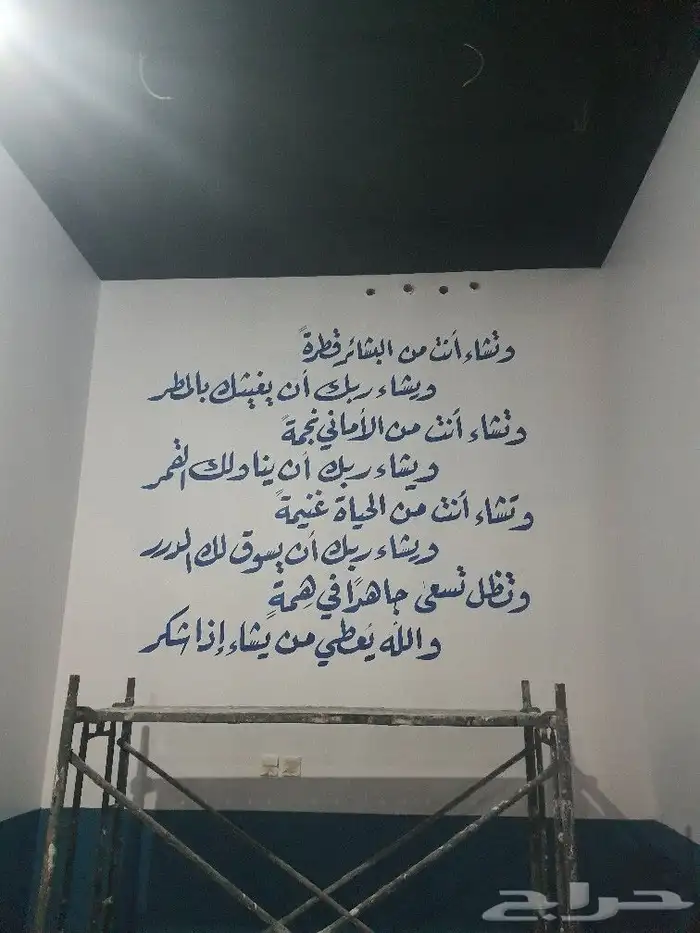 وتشاء أنت من البشائر قطرةً
ويشاء ربك أن يغيثك بالمطر
وتشاء أنت من الأماني نجمةً
ويشاء ربك أن يناولك القمر
وتشاء أنت من الحياة غنيمةً
ويشاء ربك أن يسوق لك الدرر
وتظل تسعى جاهدًا في هِمةٍ
والله يَعطي من يشاء إذا شكر
حراج